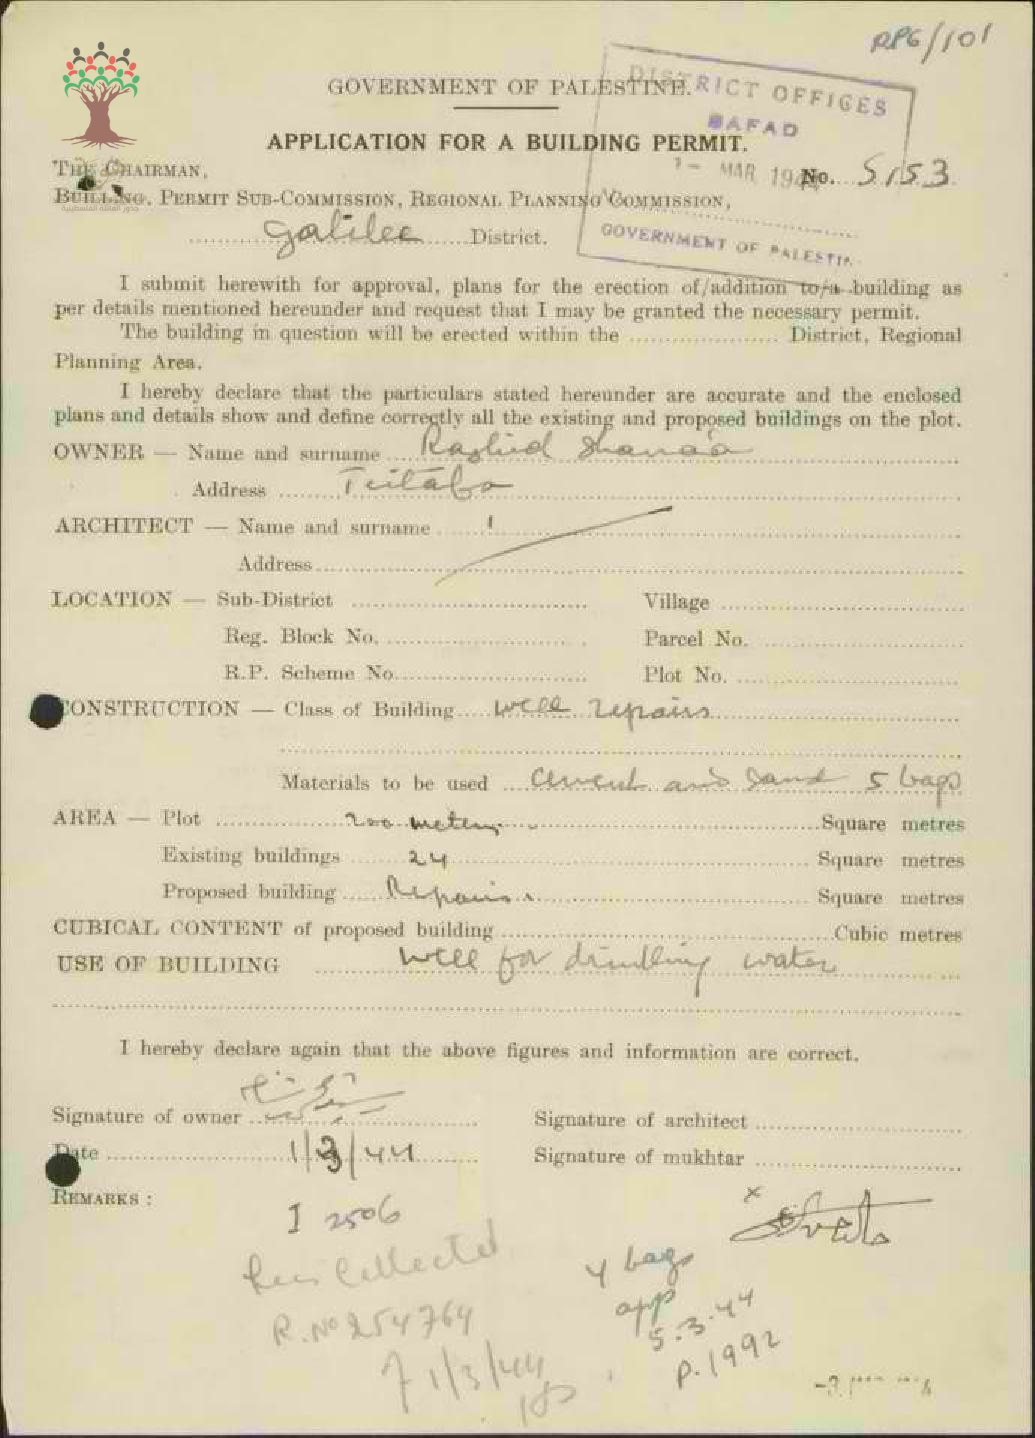 RP6/101
GOVERNMENT OF PALESTINE.
DISTRICT OFFICES
SAFAD
1 - MAR 194
GOVERNMENT OF PALESTIN
APPLICATION FOR A BUILDING PERMIT.
THE CHAIRMAN, No. 5153
BUILDING, PERMIT SUB-COMMISSION, REGIONAL PLANNING COMMISSION,
Galilee District.
I submit herewith for approval, plans for the erection of/addition to/a building as
per details mentioned hereunder and request that I may be granted the necessary permit.
The building in question will be erected within the ..................... District, Regional
Planning Area.
I hereby declare that the particulars stated hereunder are accurate and the enclosed
plans and details show and define correctly all the existing and proposed buildings on the plot.
OWNER — Name and surname Rashid
Address Teitaba
ARCHITECT — Name and surname
Address
LOCATION — Sub-District Village
Reg. Block No. Parcel No.
R.P. Scheme No. Plot No.
CONSTRUCTION — Class of Building well repairs
Materials to be used Cement and sand 5 bags
AREA — Plot 200 meters Square metres
Existing buildings 24 Square metres
Proposed building Repairs Square metres
CUBICAL CONTENT of proposed building Cubic metres
USE OF BUILDING well for drinking water
I hereby declare again that the above figures and information are correct.
Signature of owner Signature of architect
Date 1/3/44 Signature of mukhtar
REMARKS :
I 2506
fees Collected
R. No 254764
1/3/44
4 bags
app
5.3.44
P. 1992